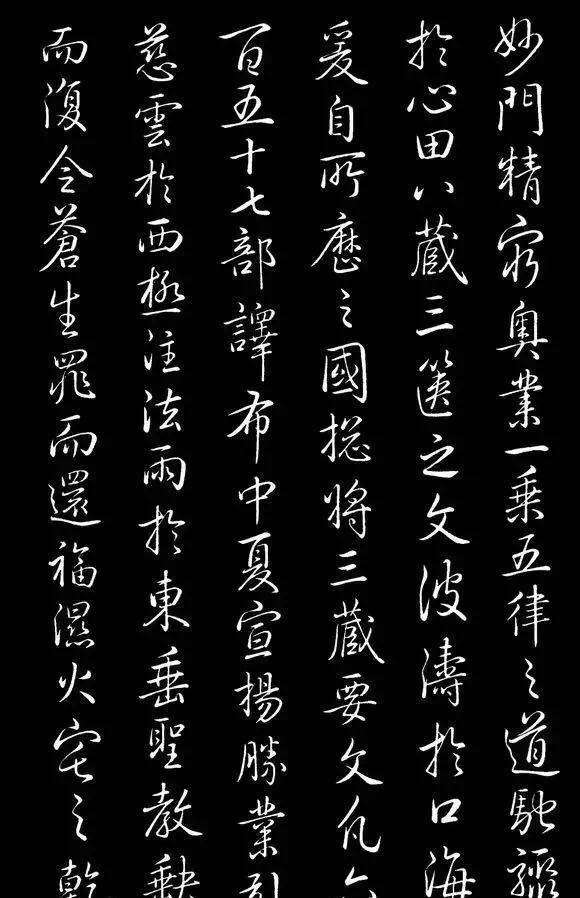 妙門精窮奧業一乘五律之道馳驟
於心田八藏三篋之文波濤於口海
爰自所歷之國揔將三藏要文凡六
百五十七部譯布中夏宣揚勝業引
慈雲於西極注法雨於東垂聖教缺
而復全蒼生罪而還福濕火宅之乾